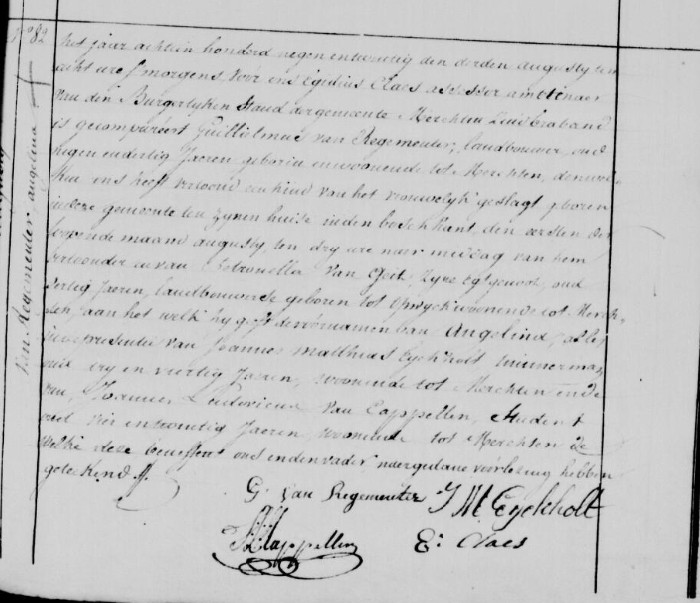 N° 82
Van Regemeuter, angelina
het jaar achtien honderd negen entwintig den derden augusty ten
acht ure s'morgens voor ons Egidius Claes assessor ambtenaer
van den Burgerlyken Staud der gemeente Merchten Zuidbraband
is gecompareert Guillielmus van Regemeuter, landbouwer oud
negen endertig Jaeren geboren enwoonende tot Merchten, denwel-
ken ons heeft vertoond een kind van het vrouwelyk geslagt geboren
indeze gemeente ten zynen huise inden boschkant, den eersten der
loopende maand augusty ten dry ure naer middag van hem
vertoonder en van Petronella Van Geit, zyne egtgenoot, oud
dertig Jaeren, landbouwerde geboren tot Opwyck woonende tot Merch-
ten, aan het welk hy geeft de voornamen van Angelina, alles
in presentie van Joannes Matthias Eyckholt
oud dry en viertig Jaeren, woonende tot Merchten ende
van Joannes Ludovicus Van Cappellen, Student
oud vier entwintig Jaeren, woonende tot Merchten de
welke deze benessens ons enden vader naergedane voorlezing hebben
geteekend
G. Van Regemeuter J M Eyckholt
Cappellen E: Claes